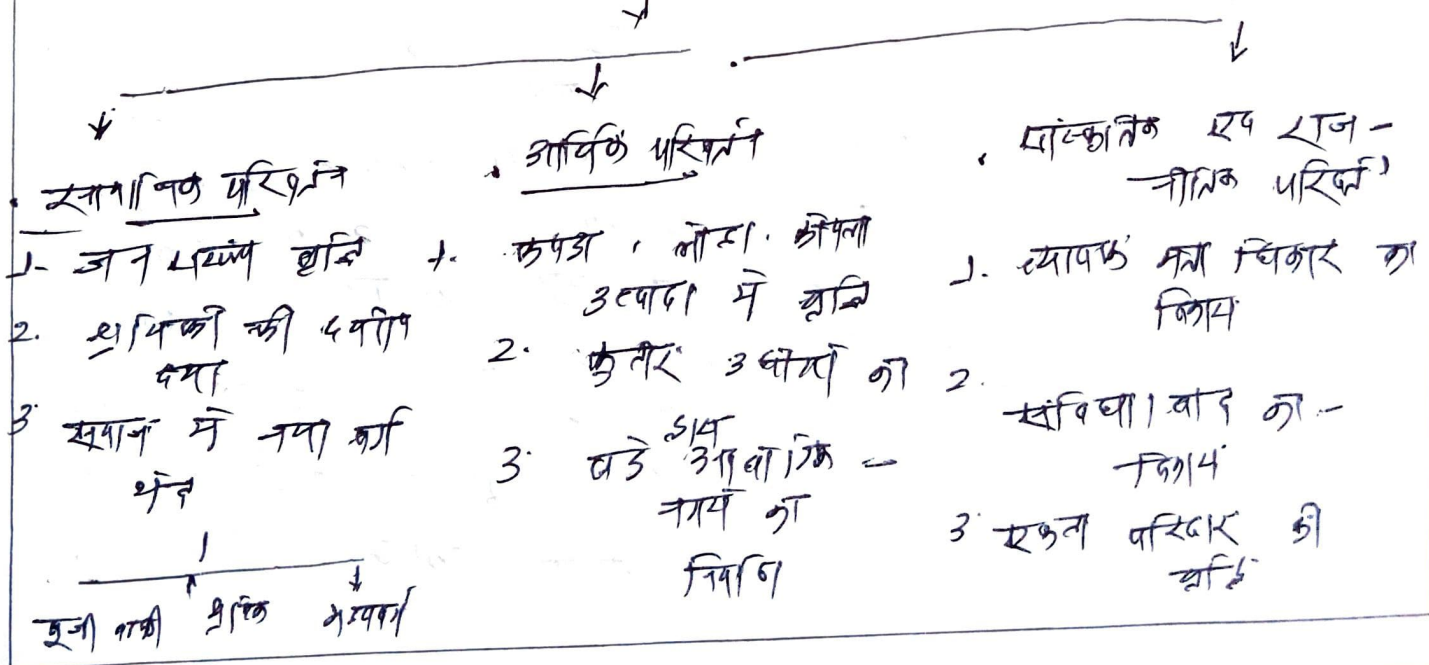 सामाजिक परिवर्तन
1- जन संख्या वृद्धि
2. श्रमिकों की दयनीय
दशा
3. समाज में नया वर्ग
भेद
पूंजीपति श्रमिक मध्यवर्ग
आर्थिक परिवर्तन
1. कपडा, लोहा, कोयला
उत्पादन में वृद्धि
2. कुटीर उद्योगों का
ह्रास
3. बडे औद्योगिक -
नगरों का
निर्माण
सांस्कृतिक एवं राज -
नीतिक परिवर्तन
1. व्यापक मताधिकार का
विकास
2. संविधानवाद का -
विकास
3. एकल परिवार की
वृद्धि